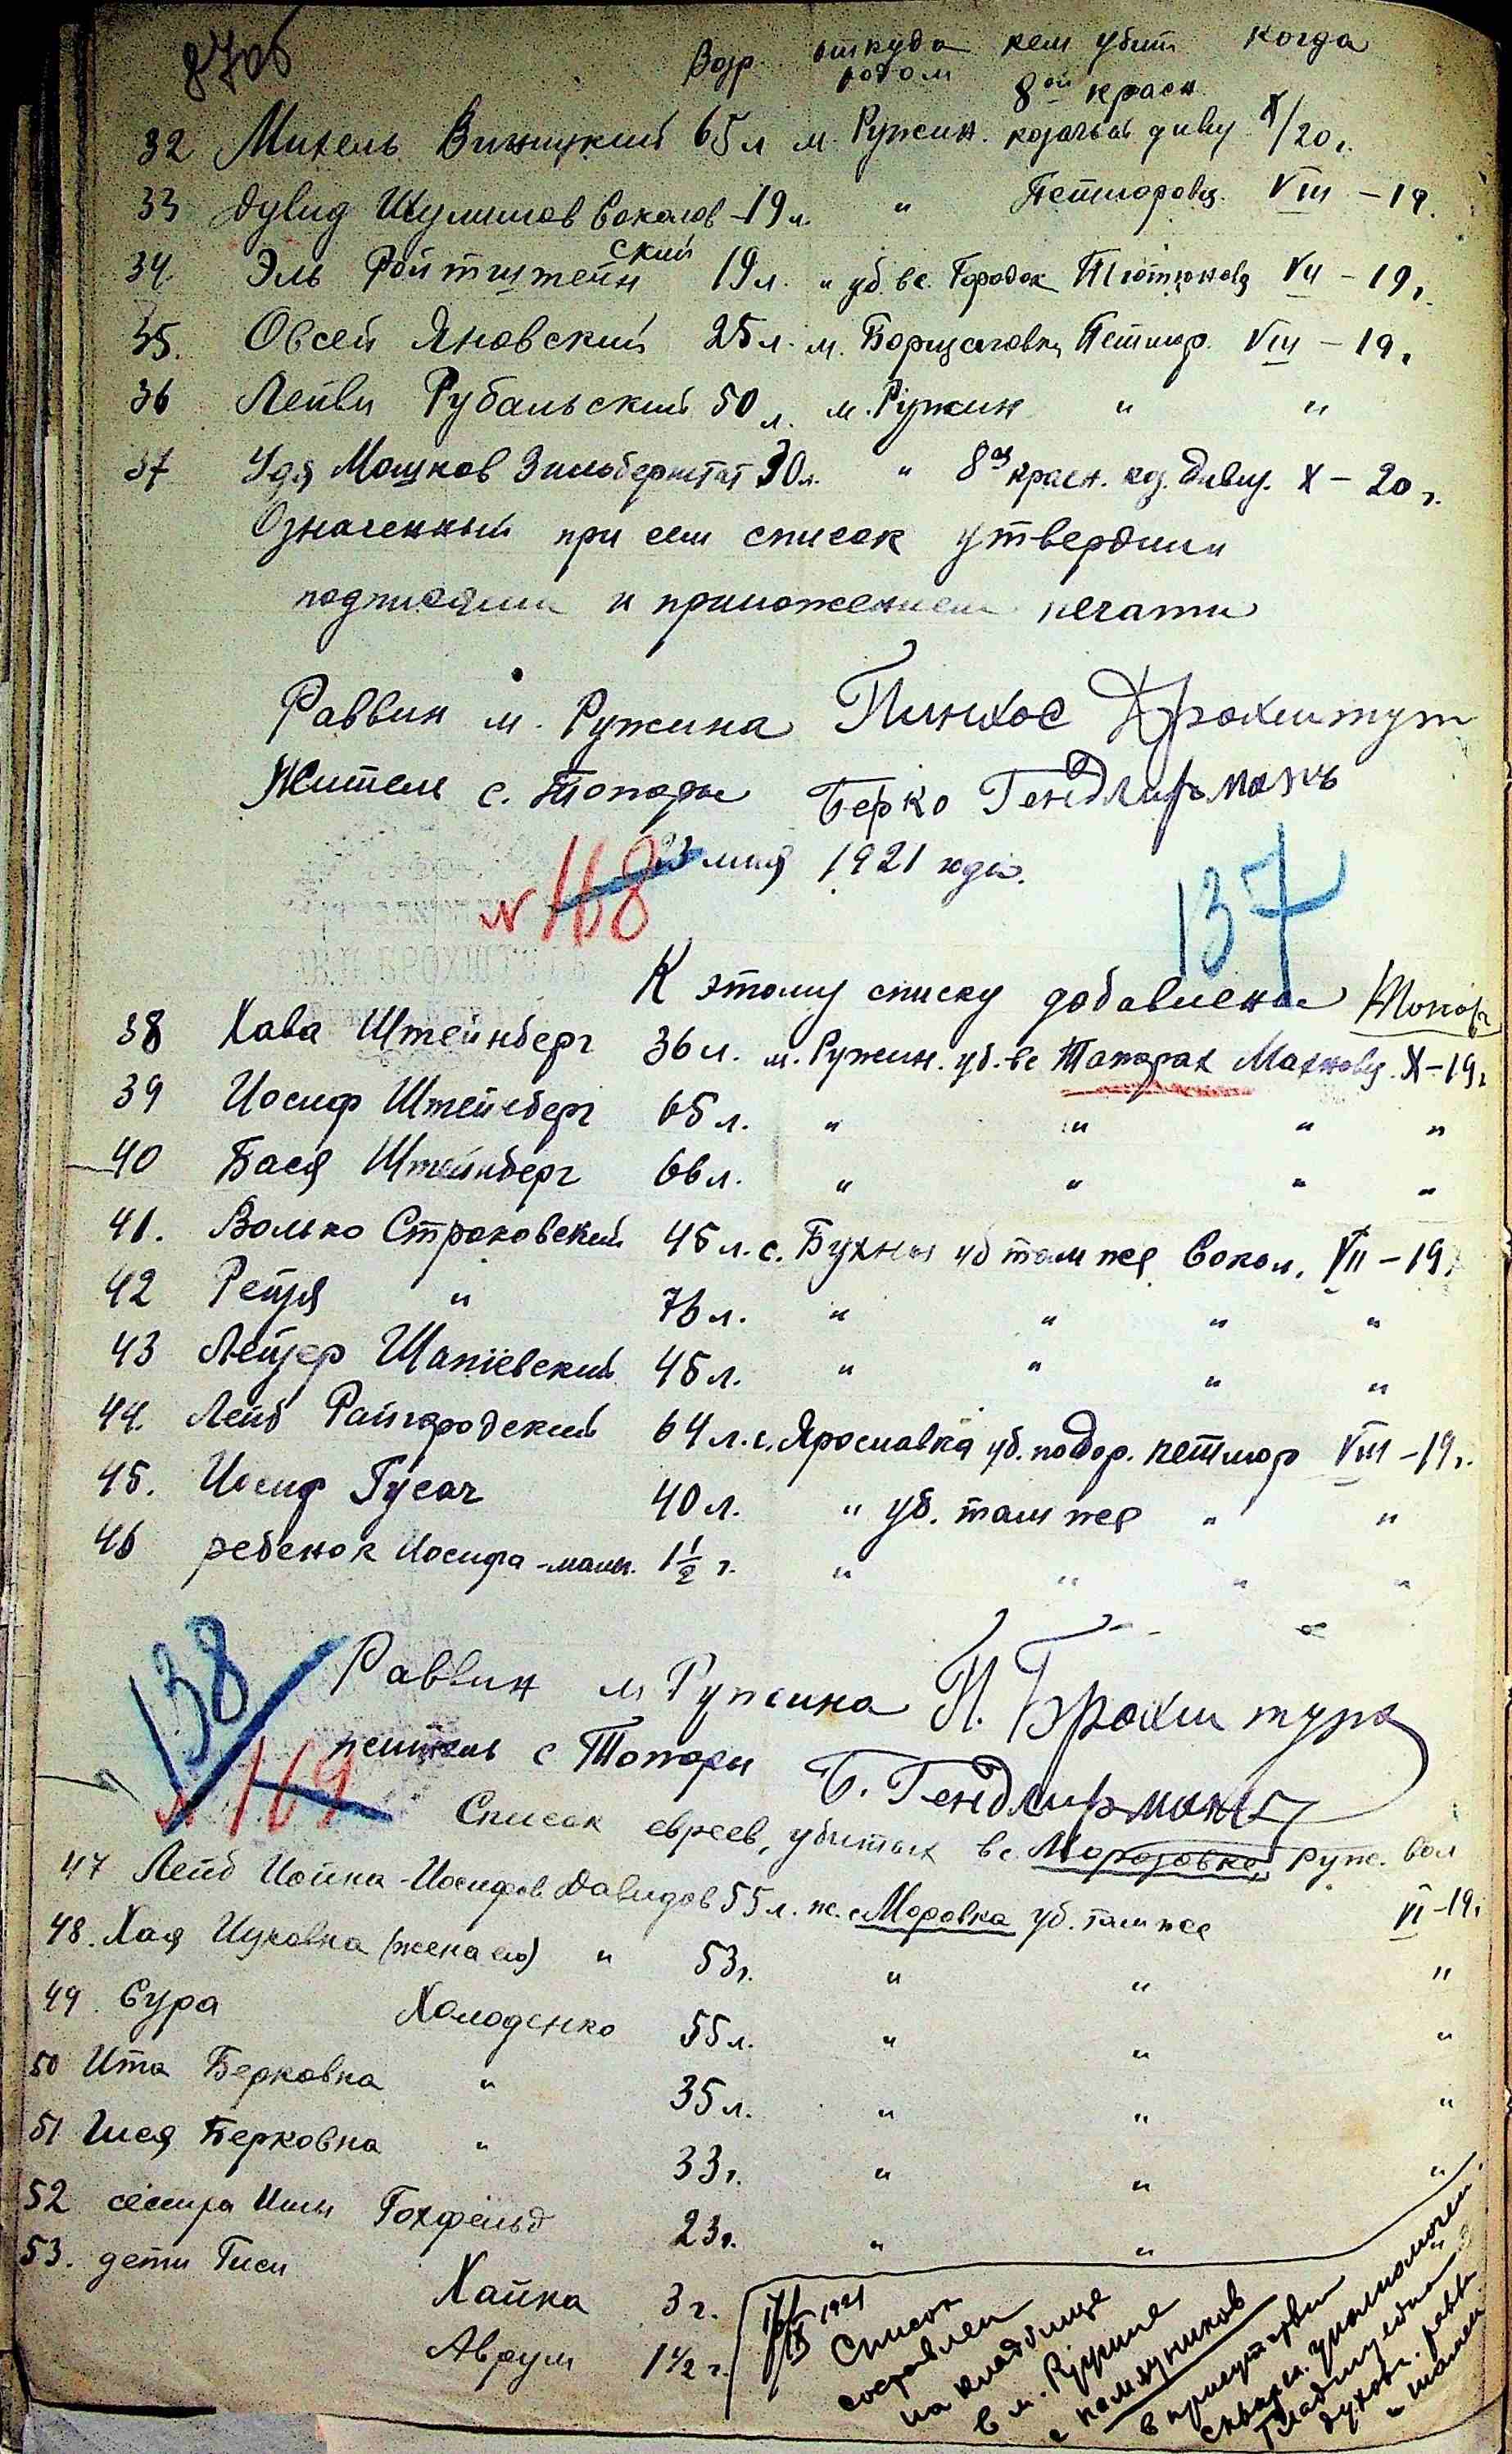 Возр. откуда родом кем убит когда
32 Михель Виницкий 65 л м. Ружин. 8ой красн козачьей дивиз X/20 г.
33 Дувид Шулимов Соколов - 19 л. " Петлюровц. VIII - 19.
34. Эль Ройтштейнский 19 л. " уб. в с. Городок Тютюновц VII - 19 г.
35. Овсей Яновский 25 л. м. Борщаговка Петлюр. VIII - 19 г.
36 Лейви Рубальский 50 л. м. Ружин " "
37 Удя Мошков Зильберштат 30 л. " 8ая красн. коз. дивиз. X - 20 г.
Означенный при сем список утвердили
подписями и приложением печати
Раввин м. Ружина Пинхос
Житель с. Топоры Берко Гендлирманъ
мая 1921 года.
№ 168
137
К этому списку добавлены Топор
38 Хава Штейнберг 36 л. м. Ружин. уб. в с Топорах Махновц. X - 19 г.
39 Иосиф Штейнберг 65 л. " " " "
40 Бася Штейнберг 66 л. " " " "
41. Волько Строковский 45 л. с. Бухны уб там же Сокол. VII - 19.
42 Рейзя " 76 л. " " " "
43 Лейзер Шапиевский 45 л. " " " "
44. Лейб Райгородский 64 л. с. Ярославка уб. по дор. петлюр VIII - 19 г.
45. Иосиф Гусач 40 л. " уб. там же " "
46 ребенок Иосифа - мальч. 1 1/2 г. " " " "
138
Раввин м Ружина П. Брохштура
житель с Топоры Б. Гендлирманъ
№ 169
Список евреев, убитых в с. Морозовке, Руж. вол
47 Лейб Иойна-Иосифов Давидов 55 л. ж. с Моровка уб. там же VI - 19 г.
48. Хая Ицковна (жена его) " 53 г. " " "
49. Сура Холоденко 55 л. " " "
50 Ита Берковна " 35 л. " " "
51 Гися Берковна " 33 г. " " "
52 сестра Гохфельд 23 г. " "
53. дети Гиси
Хайка 3 г.
Аврум 1 1/2 г.
1921
Список
составлен
на кладбище
в м. Ружине
с памятников
в присутствии